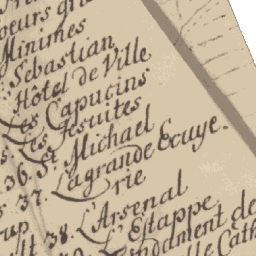 oeurs gri
Minimes
Sebastian
Hôtel de Ville
Les Capucins
Les Jesuites
36. St. Michael
37. Lagrande Ecuye-
rie
38. L'Arsenal
L'Etappe